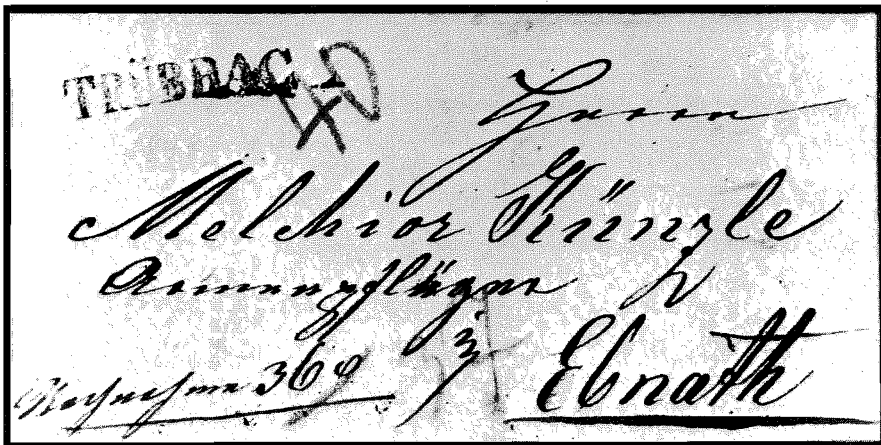 TRÜBBACH
40
Herrn
Melchior Künzle
Armenpfläger
Ebnath
Nachnahme 36